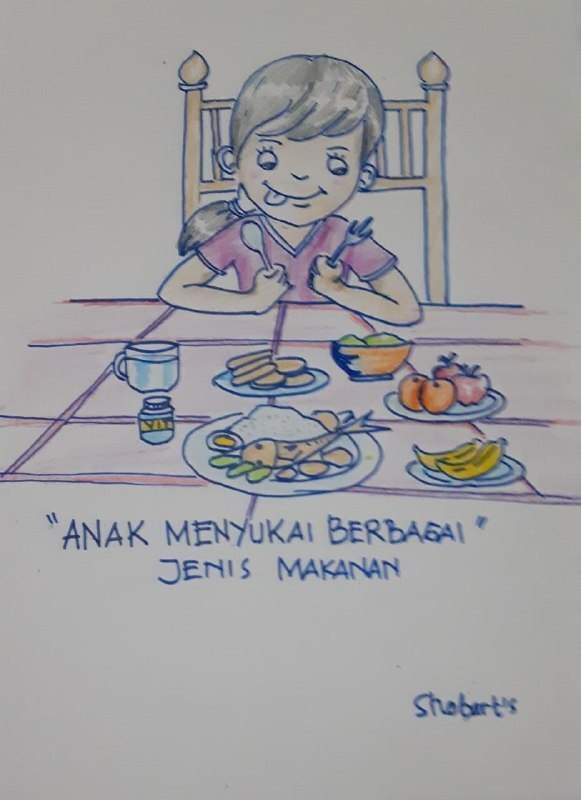 VIT
"ANAK MENYUKAI BERBAGAI"
JENIS MAKANAN
Shobart's